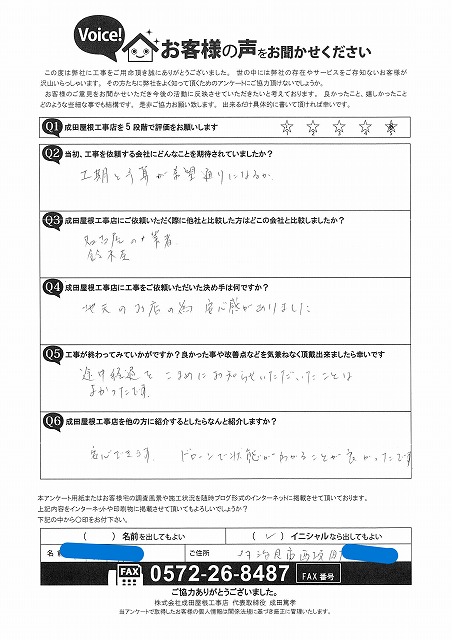 Voice!
お客様の声をお聞かせください
この度は弊社に工事をご用命頂き誠にありがとうございました。 世の中には弊社の存在やサービスをご存知ないお客様が
沢山いらっしゃいます。 その方たちに弊社をよく知って頂くためのアンケートにご協力頂けないでしょうか。
お客様のご意見をお聞かせいただき今後の活動に反映させていただきたいと考えております。 良かったこと、嬉しかったこと
どのような些細な事でも結構です。 是非ご協力お願い致します。 出来るだけ具体的に書いて頂ければ幸いです。
Q1 成田屋根工事店を5段階で評価をお願いします
Q2 当初、工事を依頼する会社にどんなことを期待されていましたか?
工期と予算が希望通りになるか
Q3 成田屋根工事店にご依頼いただく際に他社と比較した方はどこの会社と比較しましたか?
業者
Q4 成田屋根工事店に工事をご依頼いただいた決め手は何ですか?
地元のお店の為 安心感がありました
Q5 工事が終わってみていかがですか?良かった事や改善点などを気兼ねなく頂戴出来ましたら幸いです
途中経過を こまめにお知らせいただいたことは
よかったです
Q6 成田屋根工事店を他の方に紹介するとしたらなんと紹介しますか?
安心できます。 ドローンで状態がわかることが良かったです
本アンケート用紙またはお客様宅の調査風景や施工状況を随時ブログ形式のインターネットに掲載させて頂いております。
上記内容をインターネットや印刷物に掲載させて頂いてもよろしいでしょうか?
下記の中から〇印をお付下さい。
( ) 名前を出してもよい ( ✓ ) イニシャルなら出してもよい
名 ご住所
FAX 0572-26-8487 FAX番号
ご協力ありがとうございました。
株式会社成田屋根工事店 代表取締役 成田篤孝
当アンケートで取得したお客様の個人情報は関係法規に基づき厳正に管理いたします。